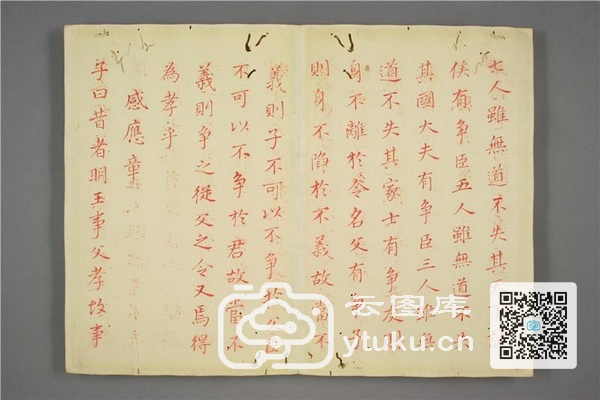 七人雖無道不失其
侯有争臣五人雖無道不
其國大夫有争臣三人雖無
道不失其家士有争友則
身不離於令名父有争子
則身不陷於不義故當不
義則子不可以不争於父臣
不可以不争於君故當不
義則争之從父之令又焉得
為孝乎
感應章
子曰昔者明王事父孝故事
云图库
ytuku.cn